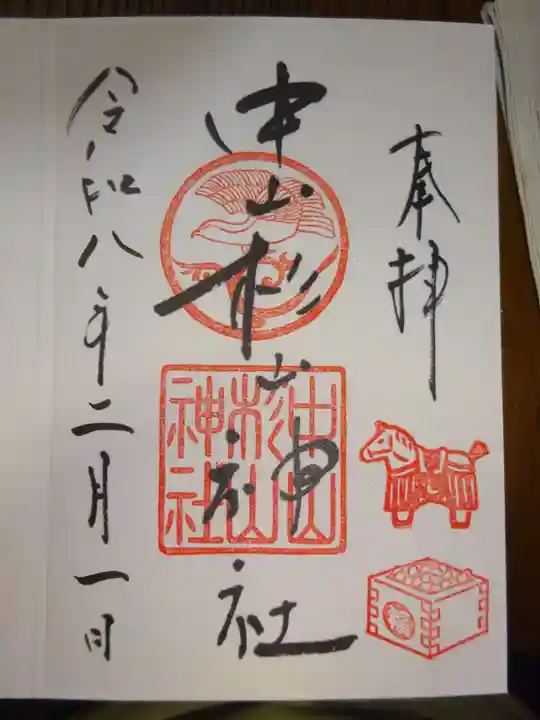 奉拝
中山杉山神社
中山
杉山
神社
令和八年二月一日